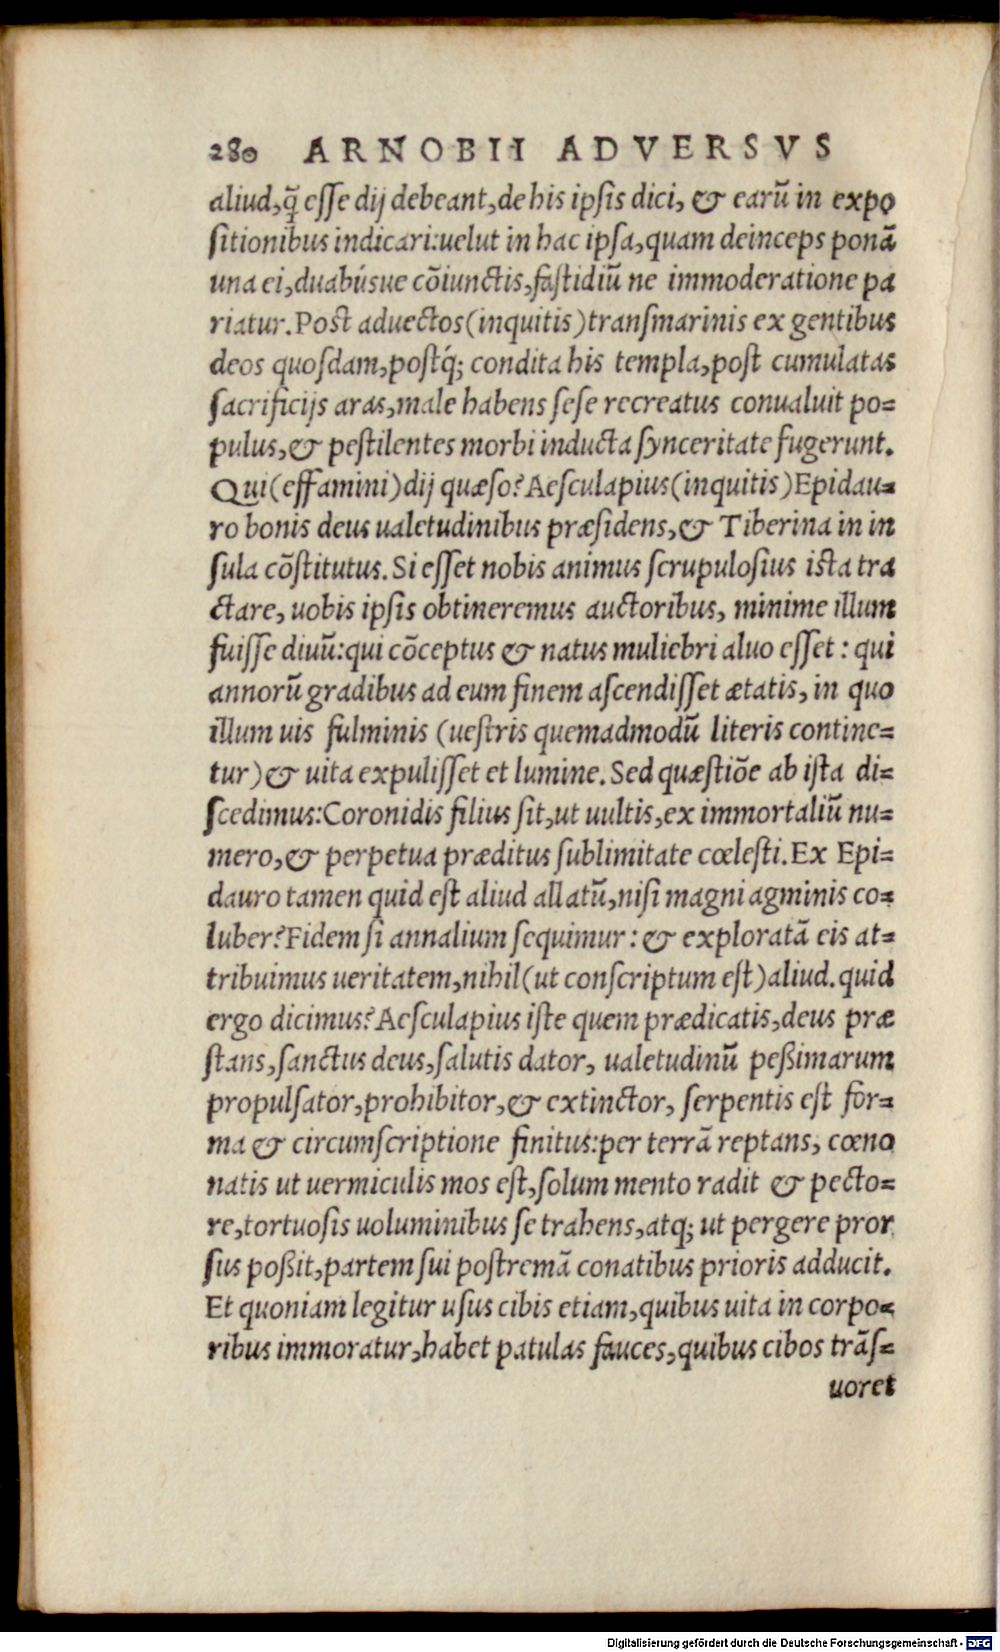 280 ARNOBII ADVERSVS
aliud, q̃ esse dij debeant, de his ipsis dici, & earũ in expo
sitionibus indicari: uelut in hac ipsa, quam deinceps ponã
una ei, duabúsue cõiunctis, fastidiũ ne immoderatione pa
riatur. Post aduectos (inquitis) transmarinis ex gentibus
deos quosdam, postq́; condita his templa, post cumulatas
sacrificijs aras, male habens sese recreatus conualuit po=
pulus, & pestilentes morbi inducta synceritate fugerunt.
Qui (effamini) dij quæso? Aesculapius (inquitis) Epidau=
ro bonis deus ualetudinibus præsidens, & Tiberina in in
sula cõstitutus. Si esset nobis animus scrupulosius ista tra
ctare, uobis ipsis obtineremus auctoribus, minime illum
fuisse diuũ: qui cõceptus & natus muliebri aluo esset: qui
annorũ gradibus ad eum finem ascendisset ætatis, in quo
illum uis fulminis (uestris quemadmodũ literis contine=
tur) & uita expulisset et lumine. Sed quæstiõe ab ista di=
scedimus: Coronidis filius sit, ut uultis, ex immortaliũ nu=
mero, & perpetua præditus sublimitate cœlesti. Ex Epi=
dauro tamen quid est aliud allatũ, nisi magni agminis co=
luber? Fidem si annalium sequimur: & exploratã eis at=
tribuimus ueritatem, nihil (ut conscriptum est) aliud. quid
ergo dicimus? Aesculapius iste quem prædicatis, deus præ
stans, sanctus deus, salutis dator, ualetudinũ peßimarum
propulsator, prohibitor, & extinctor, serpentis est for=
ma & circumscriptione finitus: per terrã reptans, cœno
natis ut uermiculis mos est, solum mento radit & pecto=
re, tortuosis uoluminibus se trahens, atq; ut pergere pror
sus poßit, partem sui postremã conatibus prioris adducit.
Et quoniam legitur usus cibis etiam, quibus uita in corpo=
ribus immoratur, habet patulas fauces, quibus cibos trãs=
uoret
Digitalisierung gefördert durch die Deutsche Forschungsgemeinschaft - DFG